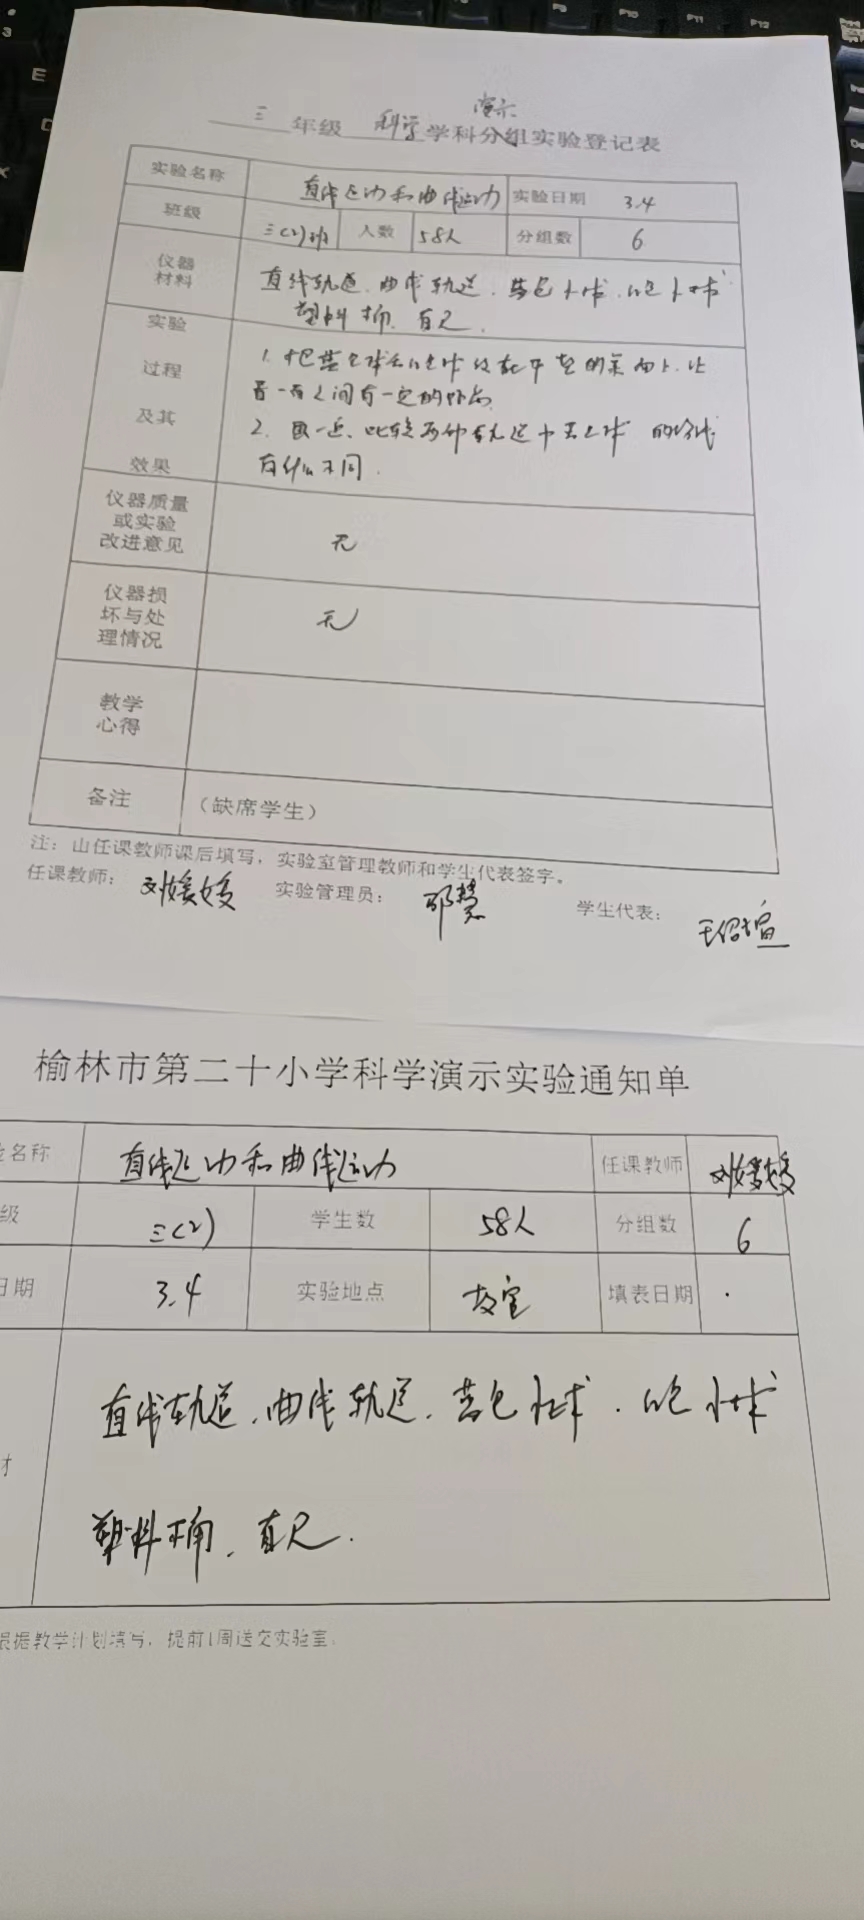 演示
三 年级 科学 学科分组实验登记表
实验名称 直线运动和曲线运动 实验日期 3.4
班级 三(2)班 人数 58人 分组数 6
仪器材料 直线轨道、曲线轨道、蓝色小球、红色小球
塑料桶、直尺.
实验过程及其效果
1. 把蓝色球和红色球放在平整的桌面上,让
者一有之间有一定的距离
2. 比较两种轨道中蓝色球的
有什么不同.
仪器质量或实验改进意见 无
仪器损坏与处理情况 无
教学心得
备注 (缺席学生)
注:山任课教师课后填写,实验室管理教师和学生代表签字。
任课教师: 刘媛媛 实验管理员: 慧 学生代表:
榆林市第二十小学科学演示实验通知单
名称 直线运动和曲线运动 任课教师 刘媛媛
级 三(2) 学生数 58人 分组数 6
日期 3.4 实验地点 教室 填表日期
材 直线轨道、曲线轨道、蓝色小球、红色小球
塑料桶、直尺.
根据教学计划填写,提前1周送交实验室。